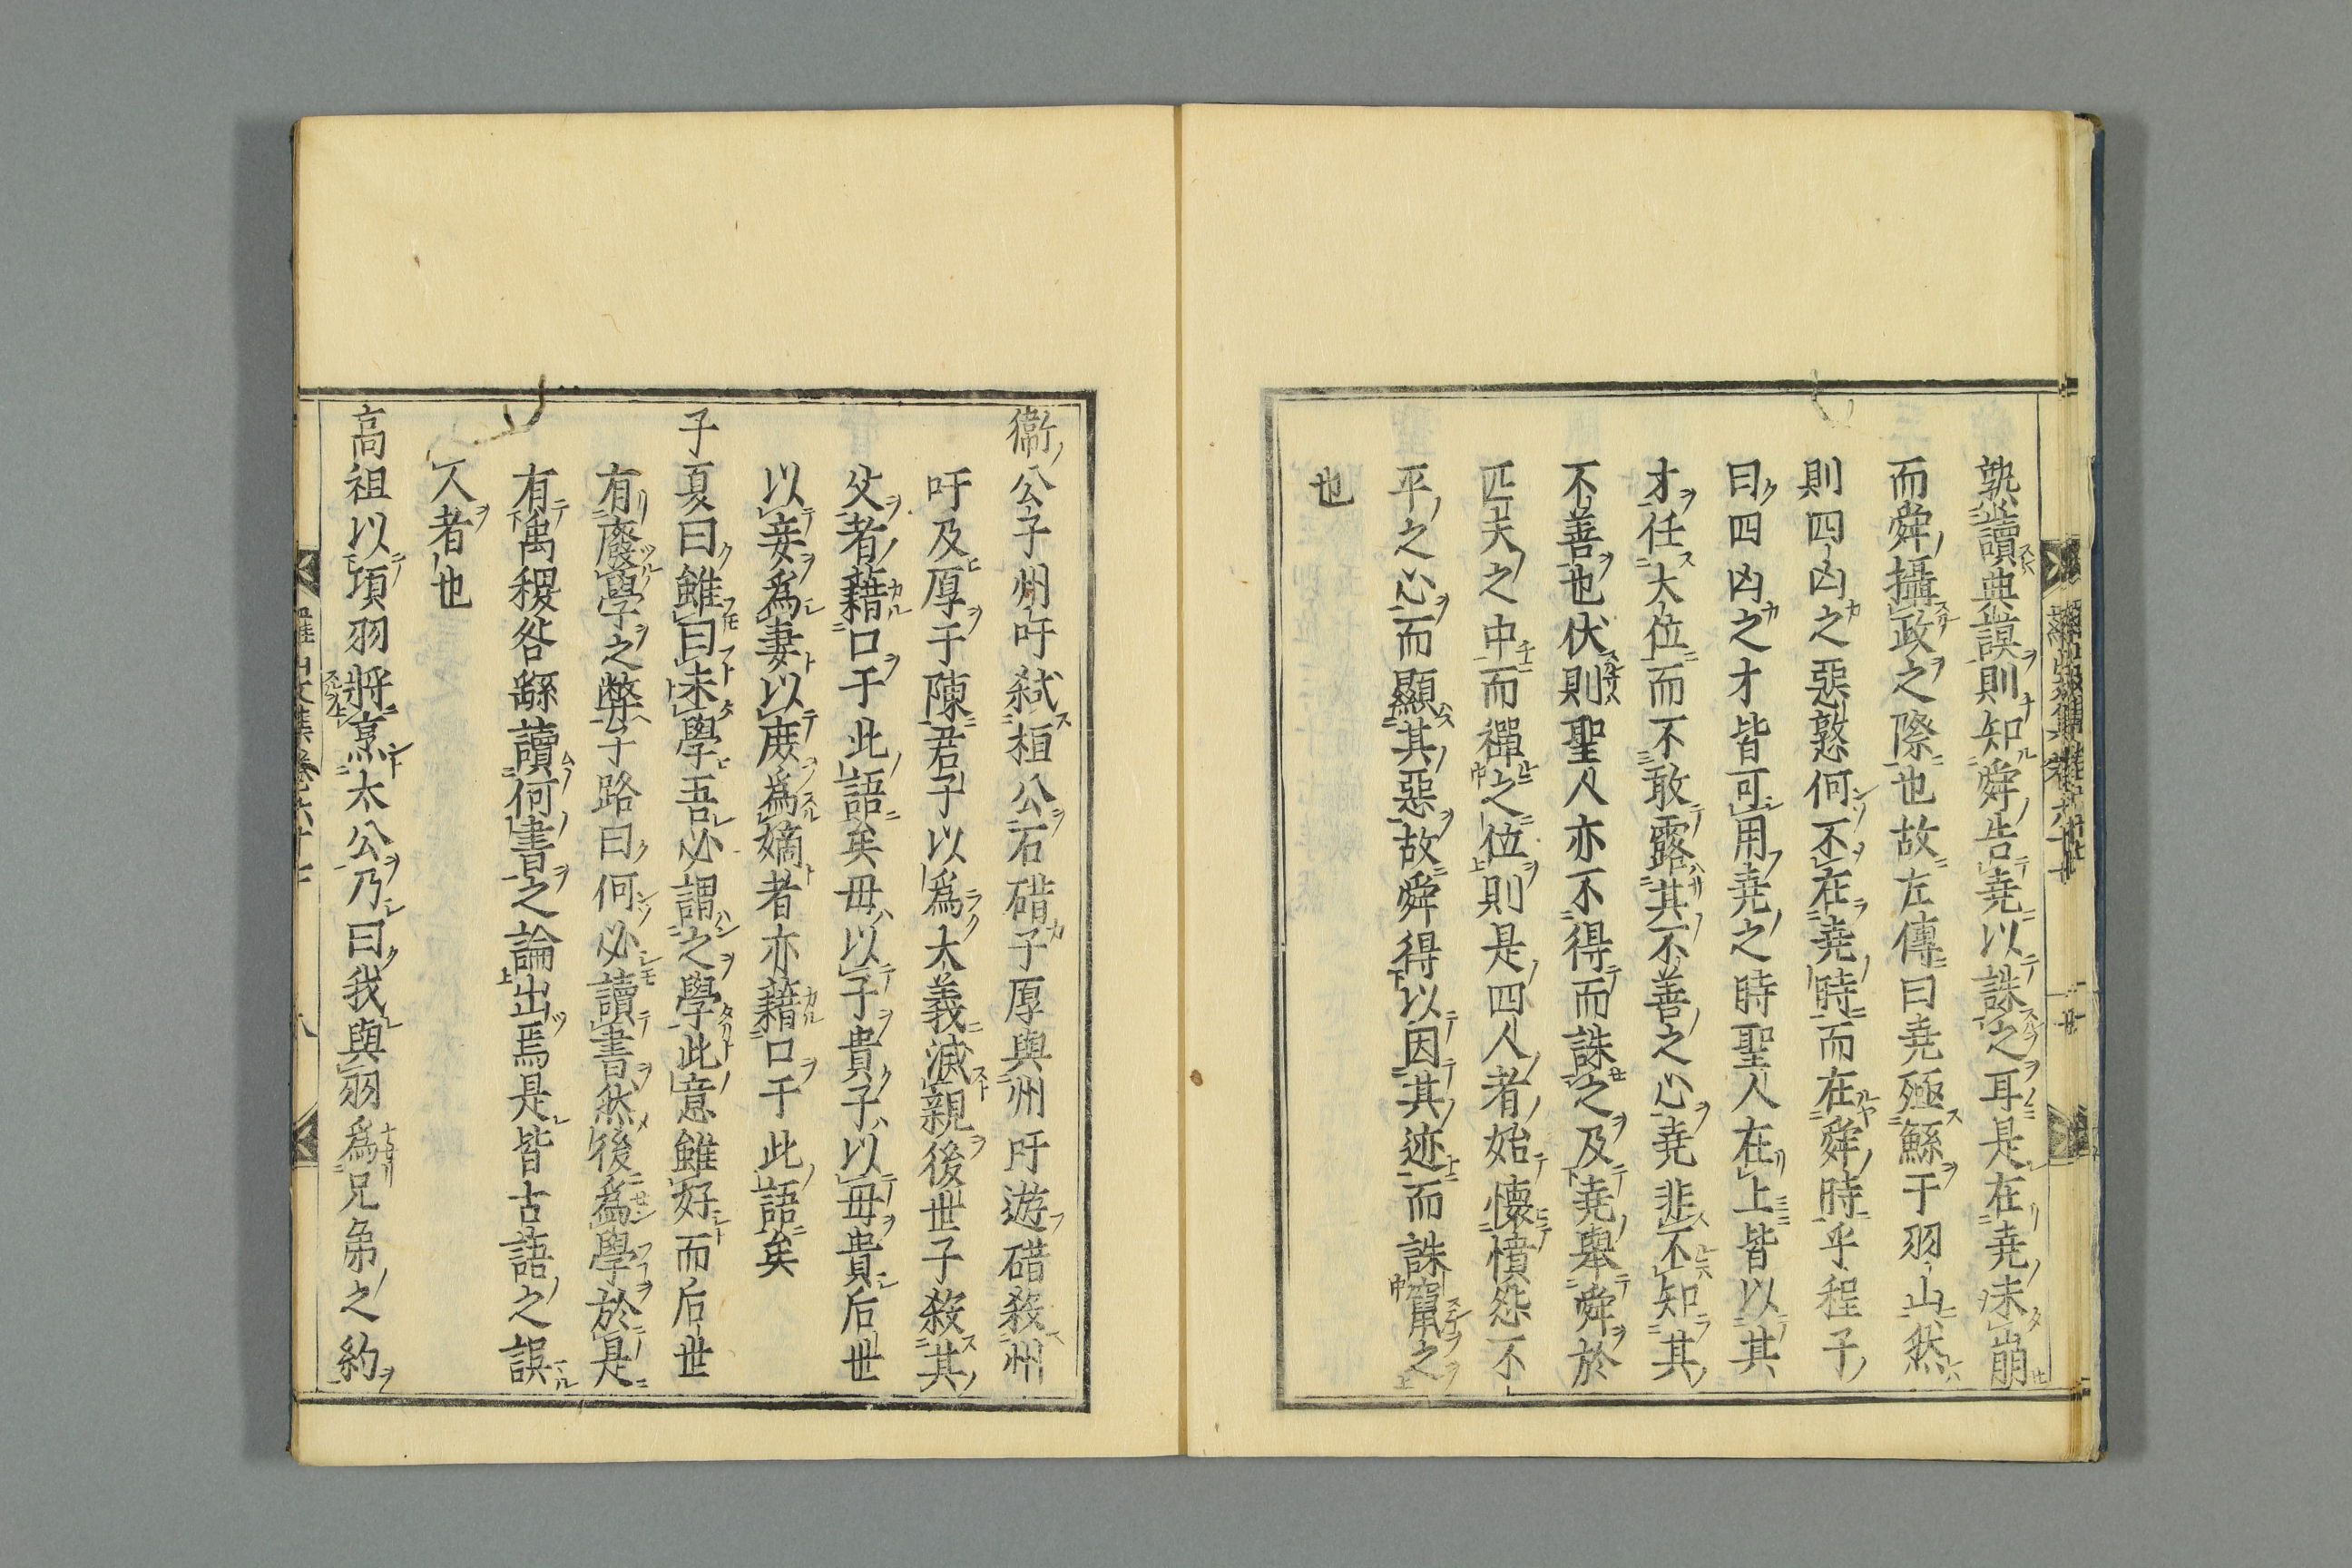 孰讀典謨則知舜告堯以誅之耳是在堯未崩
而舜攝政之際也故左傳曰堯殛鯀于羽山然
則四凶之惡慝何不在堯時而在舜時乎程子
曰四凶之才皆可用堯之時聖人在上皆以其
才任大位而不敢露其不善之心堯非不知其
不善也伏則聖人亦不得而誅之及堯舉舜於
匹夫之中而禪之位則是四人者始懷憤怨不
平之心而顯其惡故舜得以因其迹而誅竄之
也
衞公子州吁弑桓公石碏子厚與州吁遊碏殺州
吁及厚于陳君子以爲大義滅親後世子殺其
父者藉口于此語矣毋以子貴子以毋貴后世
以妾爲妻以庶爲嫡者亦藉口于此語矣
子夏曰雖曰未學吾必謂之學此意雖好而后世
有廢學之弊子路曰何必讀書然後爲學於是
有禹稷咎繇讀何書之論出焉是皆古語之誤
人者也
高祖以項羽將烹太公乃曰我與羽爲兄弟之約